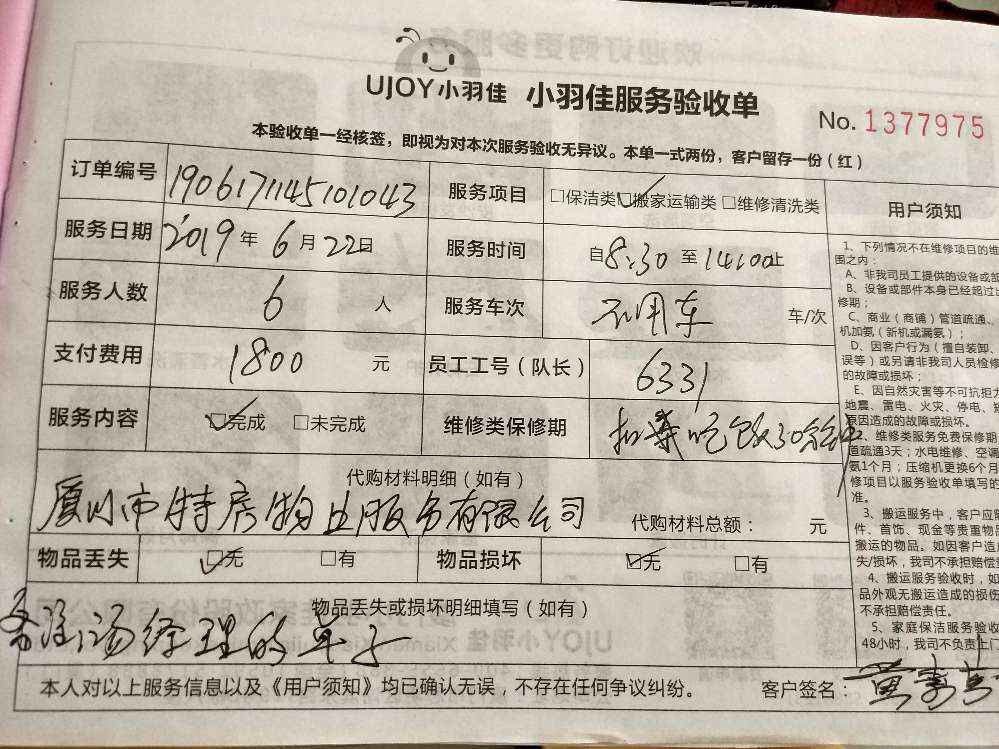 UJOY小羽佳 小羽佳服务验收单
No. 1377975
本验收单一经核签，即视为对本次服务验收无异议。本单一式两份，客户留存一份（红）
订单编号 1906171145101043 服务项目 □保洁类 ☑搬家运输类 □维修清洗类
服务日期 2019 年 6 月 22 日 服务时间 自 8:30 至 14:00 止
服务人数 6 人 服务车次 不用车 车/次
支付费用 1800 元 员工工号（队长） 6331
服务内容 ☑完成 □未完成 维修类保修期 扣乘吃饭30分钟
代购材料明细（如有）
厦门市特房物业服务有限公司 代购材料总额： 元
物品丢失 ☑无 □有 物品损坏 ☑无 □有
物品丢失或损坏明细填写（如有）
备注汤经理的单子
本人对以上服务信息以及《用户须知》均已确认无误，不存在任何争议纠纷。 客户签名：黄
用户须知
1、下列情况不在维修项目的维
围之内：
A、非我司员工提供的设备或部
B、设备或部件本身已经超过
修期；
C、商业（商铺）管道疏通、
机加氨（新机或漏氨）；
D、因客户行为（擅自装卸、
误等）或另请非我司人员检修
的故障或损坏；
E、因自然灾害等不可抗拒力
地震、雷电、火灾、停电、
原因造成的故障或损坏。
2、维修类服务免费保修期
道疏通3天；水电维修、空调
氨1个月；压缩机更换6个月
修项目以服务验收单填写的
准。
3、搬运服务中，客户应
件、首饰、现金等贵重物品
搬运的物品。如因客户造成
失/损坏，我司不承担赔偿责
4、搬运服务验收时，如
品外观无搬运造成的损伤
不承担赔偿责任。
5、家庭保洁服务验收
48小时，我司不负责上门